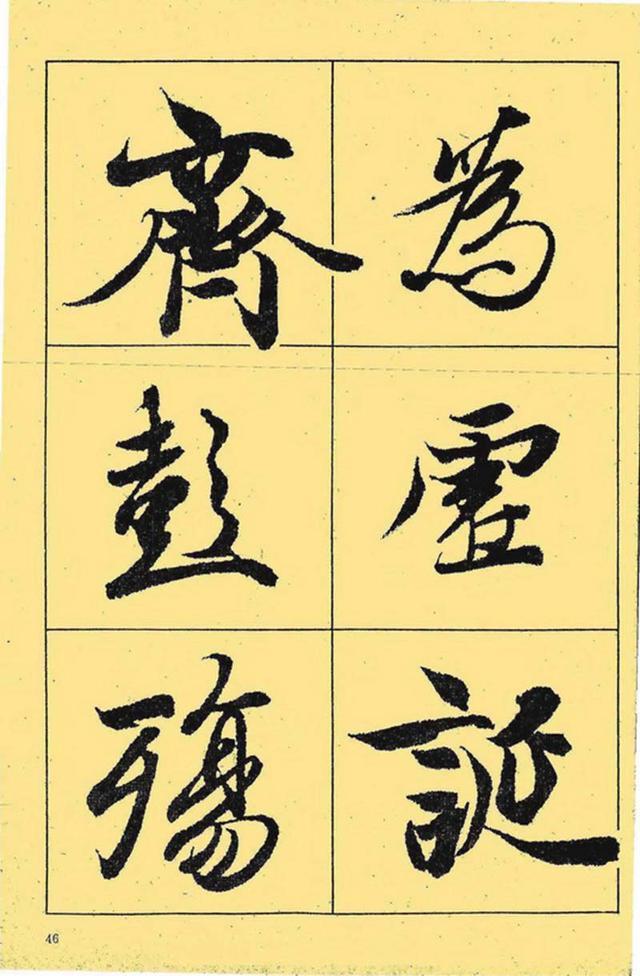 為虛誕
齊彭殤
46